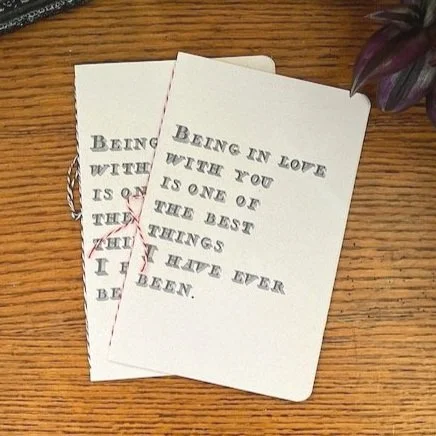 BEING IN LOVE
WITH YOU
IS ONE OF
THE BEST
THINGS
I HAVE EVER
BEEN.
BEING
WITH
IS ON
THE
THI
I
BE